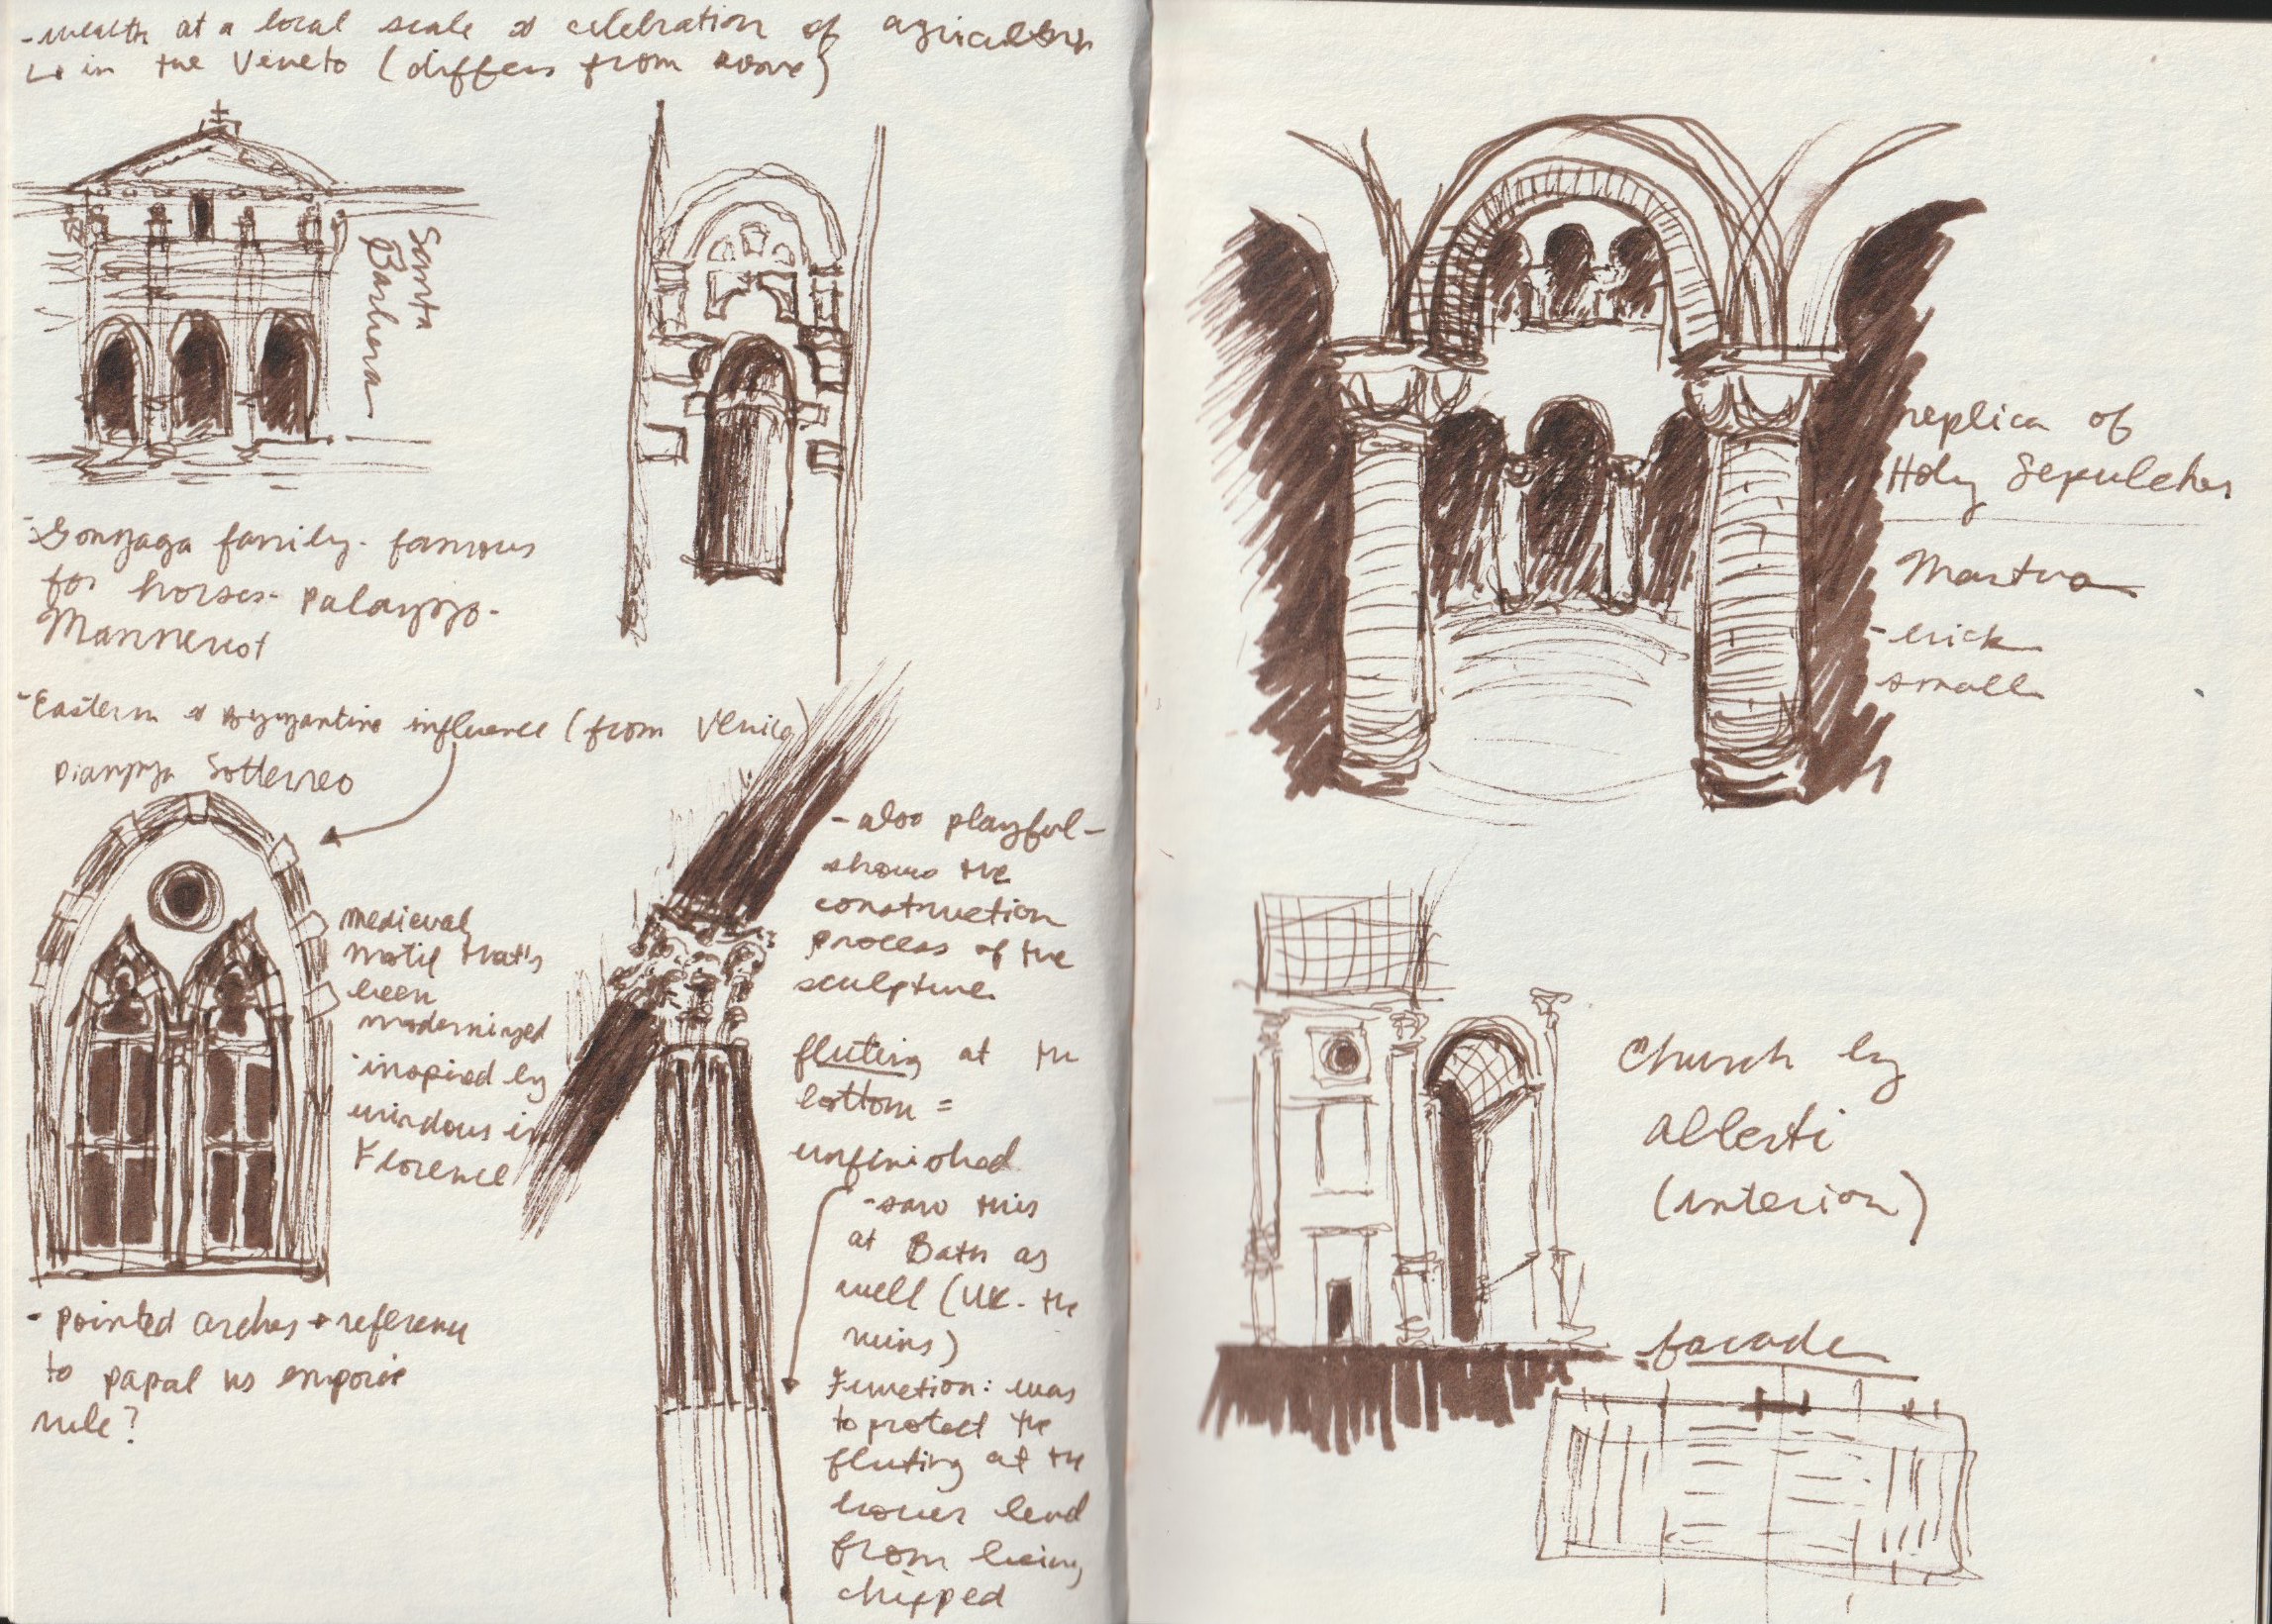 - wealth at a local scale & celebration of agriculture
↳ in the Veneto (differs from Rome)
Santa
Barbera
- Gonzaga family - famous
for horses - palazzo -
Mannerist
- Eastern & Byzantine influence (from Venice)
piazza Sotterreo
medieval
motif that's
been
modernized
· inspired by
windows in
Florence
- pointed arches → reference
to papal vs empire
rule?
- also playful -
shows the
construction
process of the
sculpture.
fluting at the
bottom =
unfinished
- saw this
at Bath as
well (UK - the
ruins)
Function: was
to protect the
fluting at the
lower level
from being
chipped
replica of
Holy Sepulcher
Mantua
- brick
small
Church by
Alberti
(interior)
facade